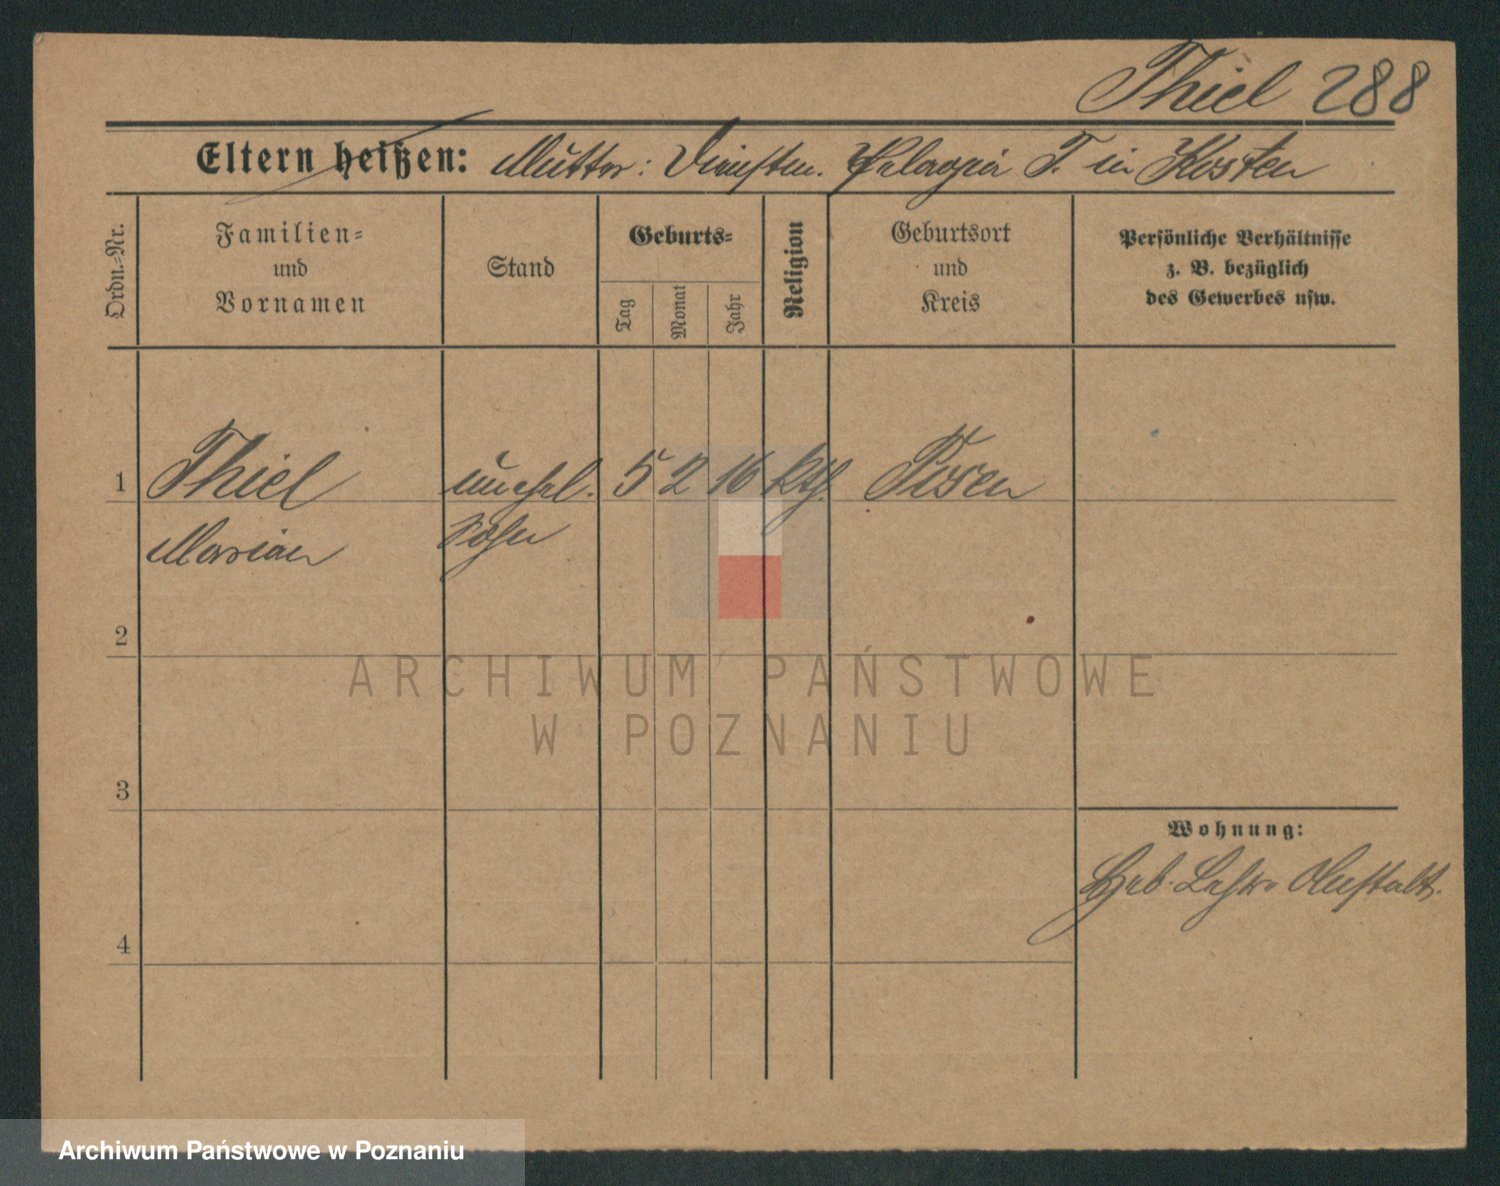 Thiel 288
Eltern heißen: Mutter: Dienstm. Pelagia T. in Kosten
Ordn.-Nr.
Familien-
und
Vornamen
Stand
Geburts-
Tag
Monat
Jahr
Religion
Geburtsort
und
Kreis
Persönliche Verhältnisse
z. B. bezüglich
des Gewerbes usw.
1 Thiel unehel. 5 2 16 kth. Posen
Marian Sohn
2
3
4
Wohnung:
Heb. Lehr Anstalt.
ARCHIWUM PAŃSTWOWE
W POZNANIU
Archiwum Państwowe w Poznaniu